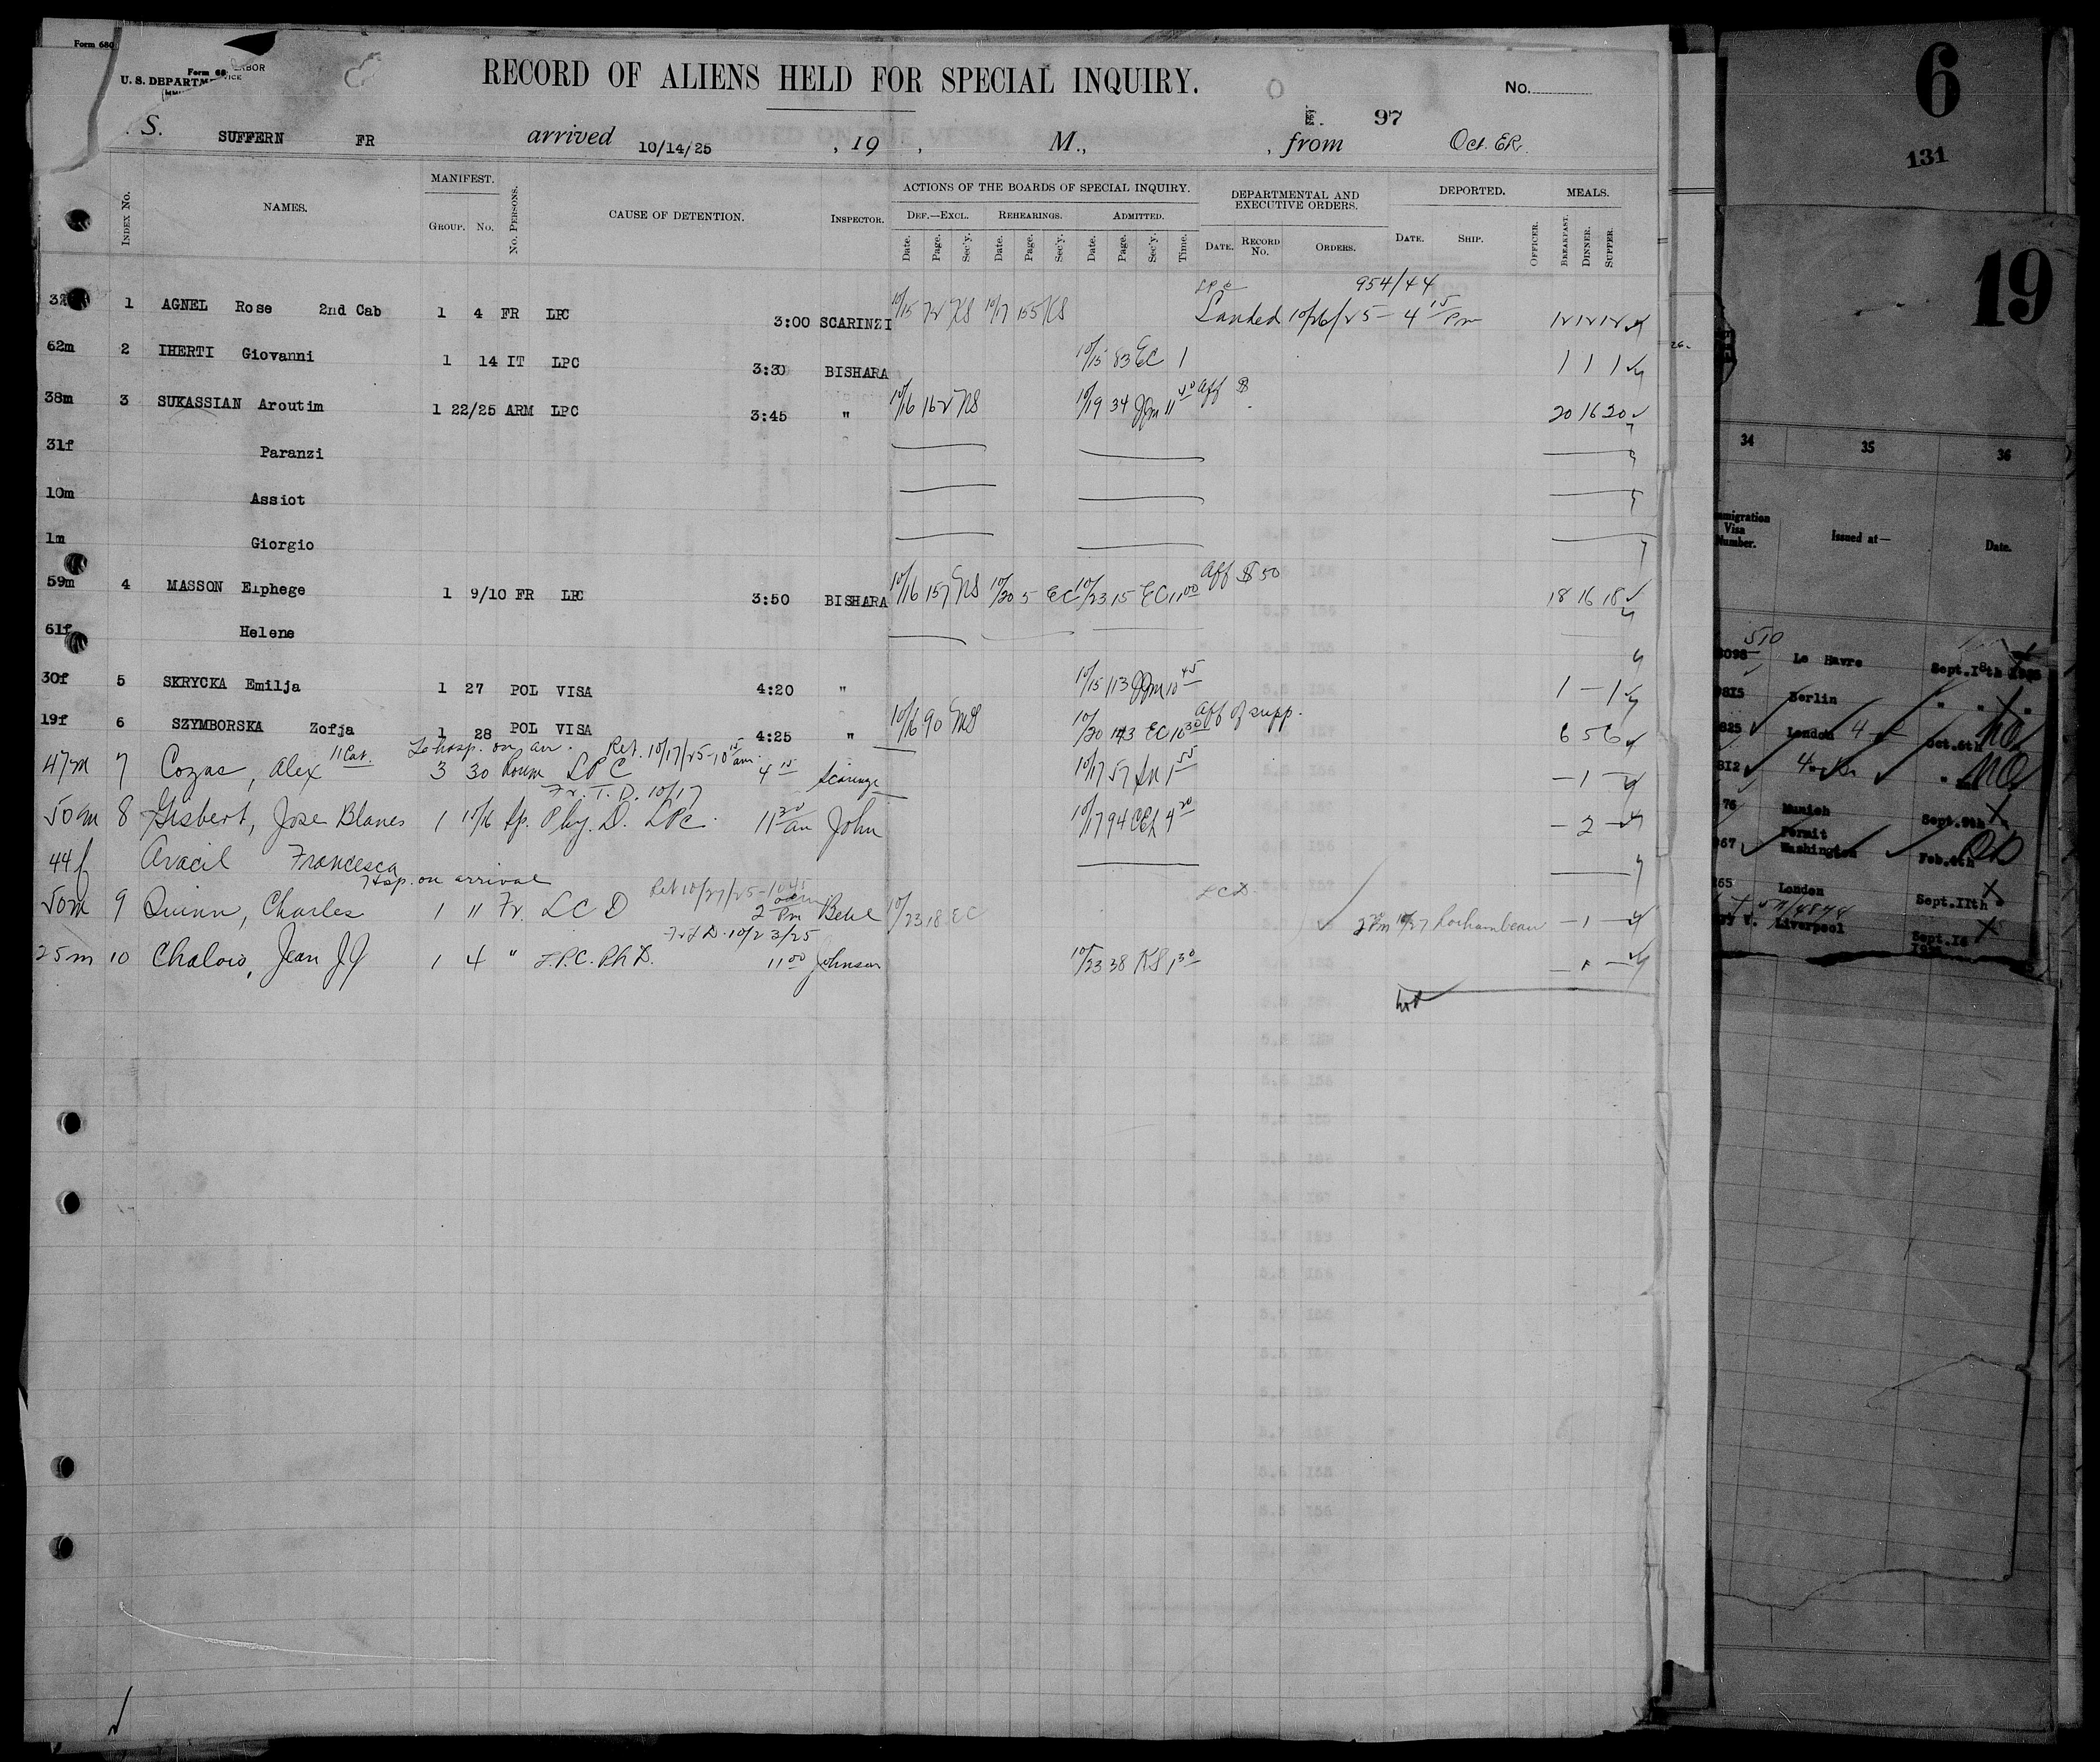 Form 680
Form 68
U. S. DEPARTM
RECORD OF ALIENS HELD FOR SPECIAL INQUIRY.
No.
97
S. SUFFERN FR arrived 10/14/25 , 19 , M., , from Oct. ER.
INDEX No. NAMES. MANIFEST. GROUP. No. No. PERSONS. CAUSE OF DETENTION. INSPECTOR. ACTIONS OF THE BOARDS OF SPECIAL INQUIRY. DEPARTMENTAL AND EXECUTIVE ORDERS. DEPORTED. MEALS.
DEF.—EXCL. REHEARINGS. ADMITTED.
Date. Page. Sec'y. Date. Page. Sec'y. Date. Page. Sec'y. Time. DATE. RECORD No. ORDERS. DATE. SHIP. OFFICER. BREAKFAST. DINNER. SUPPER.
954/44
1 AGNEL Rose 2nd Cab 1 4 FR LPC 3:00 SCARINZI 10/15 72 KS 10/17 155 KS Landed 10/26/25 - 4 15 Pm 12 12 12
62m 2 IHERTI Giovanni 1 14 IT LPC 3:30 BISHARA 10/15 83 EC 1 1 1 1
38m 3 SUKASSIAN Aroutim 1 22/25 ARM LPC 3:45 " 10/16 162 10/19 34 JJm 11 40 Aff $ 20 16 20
31f Paranzi
10m Assiot
1m Giorgio
59m 4 MASSON Elphege 1 9/10 FR LPC 3:50 BISHARA 10/16 157 10/20 5 EC 10/23 15 EC 11 00 Aff $50 18 16 18
61f Helene
30f 5 SKRYCKA Emilja 1 27 POL VISA 4:20 " 10/15 113 JJm 10 45 1 — 1
19f 6 SZYMBORSKA Zofja 1 28 POL VISA 4:25 " 10/16 90 10/20 143 EC 10 30 Aff of supp. 6 5 6
To hosp. on arr. Ret. 10/17/25 - 10 15 am.
47m 7 Cozas, Alex 11 Cat. 3 30 Roum LPC 4 15 10/17 57 1 55 — 1 —
Fr. T. D. 10/17
50m 8 Gisbert, Jose Blanes 1 15/16 Sp. Phy. D. LPC. 11 30 an John 10/17 94 4 20 — 2 —
44f Aracil Francesca
Hosp. on arrival Ret 10/27/25 - 10 45
50m 9 Quinn, Charles 1 11 Fr. LCD 2 Pm 10/23 18 EC LCD. 10/27 Rochambeau — 1 —
10/23/25
25m 10 Jean 1 4 " L.P.C. Ph D. 11 00 Johnson 10/23 38 KS 1 30
6
131
19
34 35 36
Visa Issued at— Date.
510
Le Havre Sept.18th
Berlin
London Oct.6th
Munich Sept.9th
Permit Washington Feb.4th
London Sept.11th
Liverpool